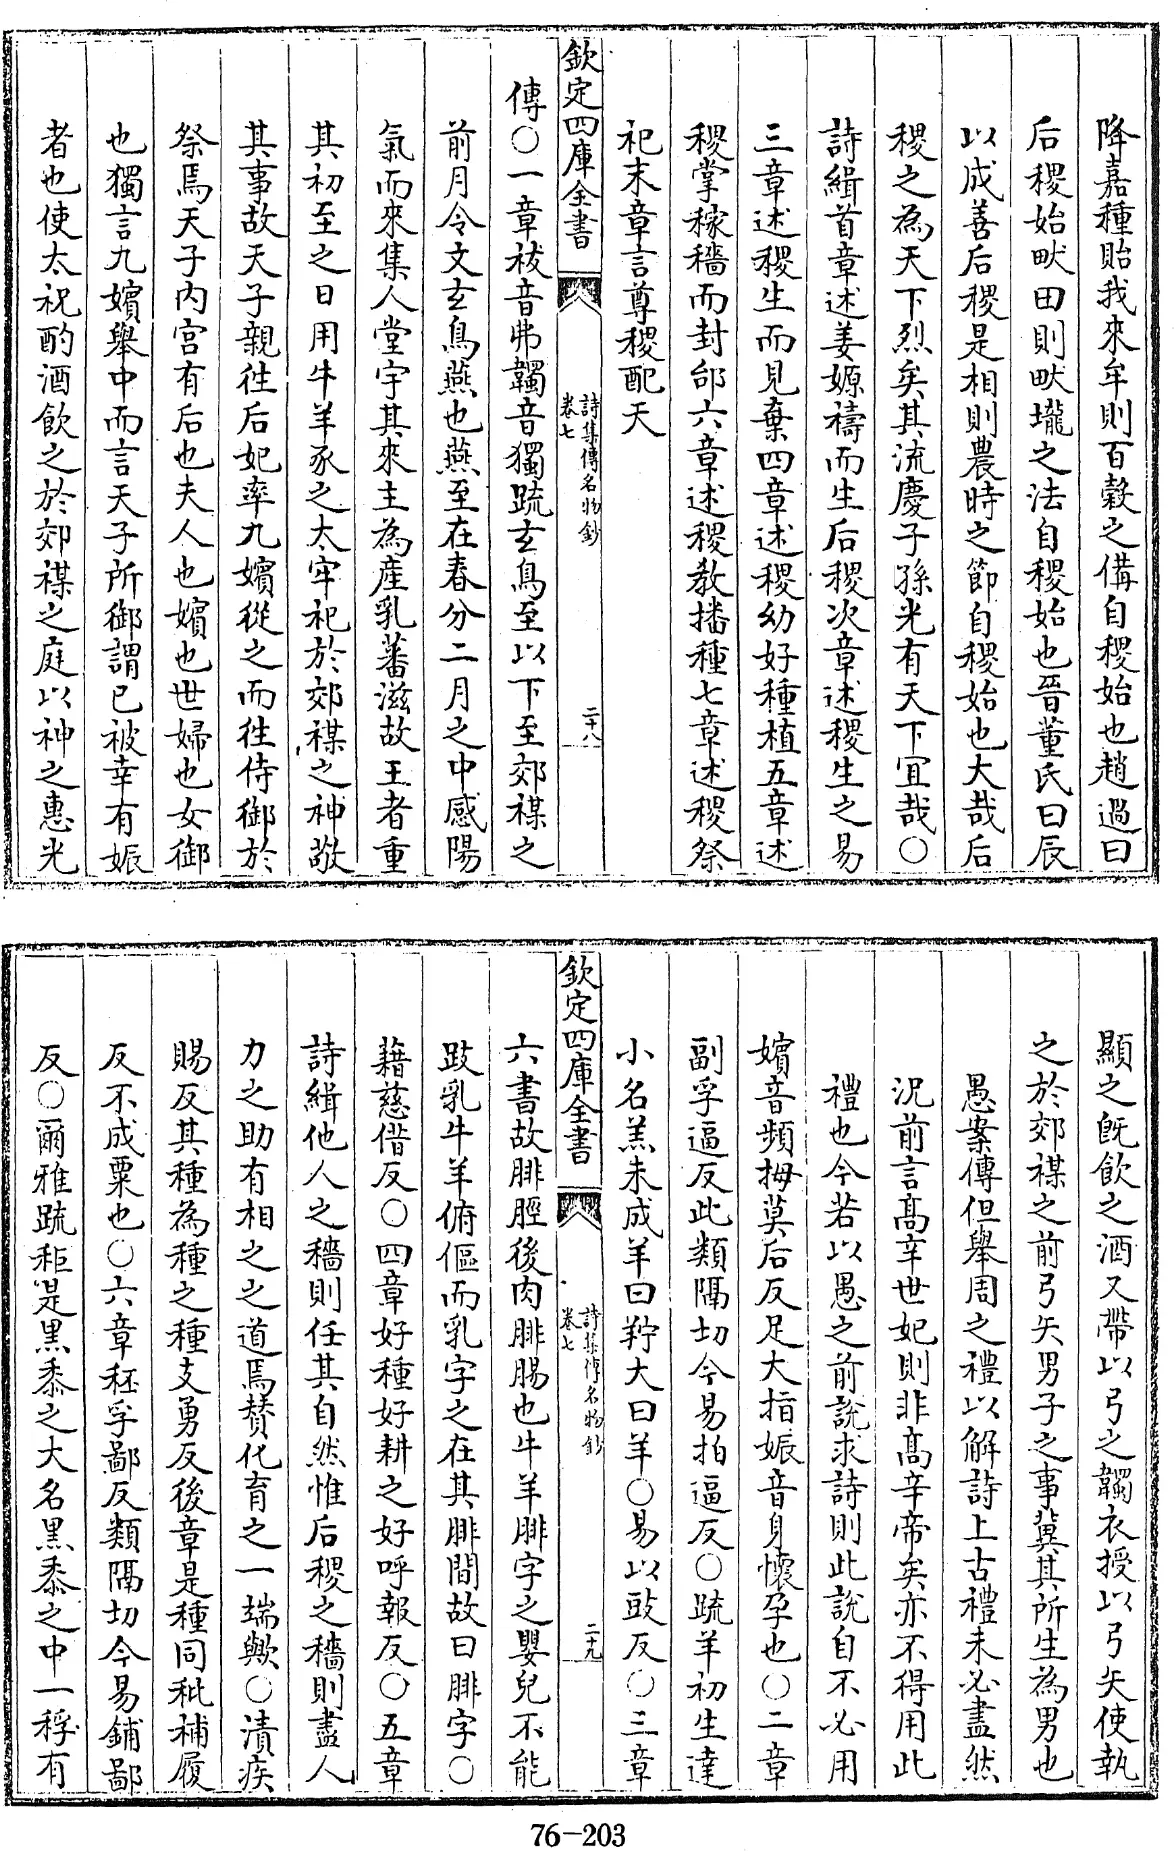 降嘉種貽我來牟則百穀之備自稷始也趙過曰
后稷始畎田則畎壠之法自稷始也晉董氏曰辰
以成善后稷是相則農時之節自稷始也大哉后
稷之為天下烈矣其流慶子孫光有天下宜哉○
詩緝首章述姜嫄禱而生后稷次章述稷生之易
三章述稷生而見棄四章述稷幼好種植五章述
稷掌稼穡而封邰六章述稷教播種七章述稷祭
祀末章言尊稷配天
欽定四庫全書
詩集傳名物鈔
卷七
二十八
傳○一章祓音弗韣音獨疏玄鳥至以下至郊禖之
前月令文玄鳥燕也燕至在春分二月之中感陽
氣而來集人堂宇其來主為產乳蕃滋故王者重
其初至之日用牛羊豕之太牢祀於郊禖之神敬
其事故天子親往后妃率九嬪從之而往侍御於
祭焉天子內宮有后也夫人也嬪也世婦也女御
也獨言九嬪舉中而言天子所御謂已被幸有娠
者也使太祝酌酒飲之於郊禖之庭以神之惠光
顯之既飲之酒又帶以弓之韣衣授以弓矢使執
之於郊禖之前弓矢男子之事冀其所生為男也
愚案傳但舉周之禮以解詩上古禮未必盡然
況前言高辛世妃則非高辛帝矣亦不得用此
禮也今若以愚之前說求詩則此說自不必用
嬪音頻拇莫后反足大指娠音身懷孕也○二章
副孚逼反此類隔切今易拍逼反○疏羊初生達
小名羔未成羊曰羜大曰羊○易以豉反○三章
欽定四庫全書
詩集傳名物鈔
卷七
二十九
六書故腓脛後肉腓腸也牛羊腓字之嬰兒不能
跂乳牛羊俯傴而乳字之在其腓間故曰腓字○
藉慈借反○四章好種好耕之好呼報反○五章
詩緝他人之穡則任其自然惟后稷之穡則盡人
力之助有相之之道焉贊化育之一端歟○漬疾
賜反其種為種之種支勇反後章是種同秕補履
反不成粟也○六章秠孚鄙反類隔切今易鋪鄙
反○爾雅疏秬是黑黍之大名黑黍之中一稃有
76-203